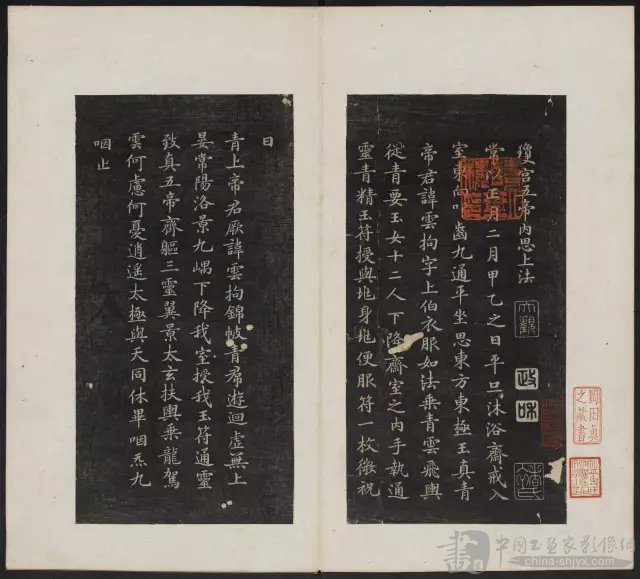 瓊宮五帝內思上法
常以正月二月甲乙之日平旦沐浴齋戒入
室東向叩齒九通平坐思東方東極玉真青
帝君諱雲拘字上伯衣服如法乘青雲飛輿
從青要玉女十二人下降齋室之內手執通
靈青精玉符授與地身地便服符一枚微祝
曰
青上帝君厥諱雲拘錦帔青帬遊迴虛無上
晏常陽洛景九嵎下降我室授我玉符通靈
致真五帝齊軀三靈翼景太玄扶輿乘龍駕
雲何慮何憂逍遥太極與天同休畢咽炁九
咽止
大觀
政和
岡田真
之藏書
中国书画家影像網
china-shjyx.com